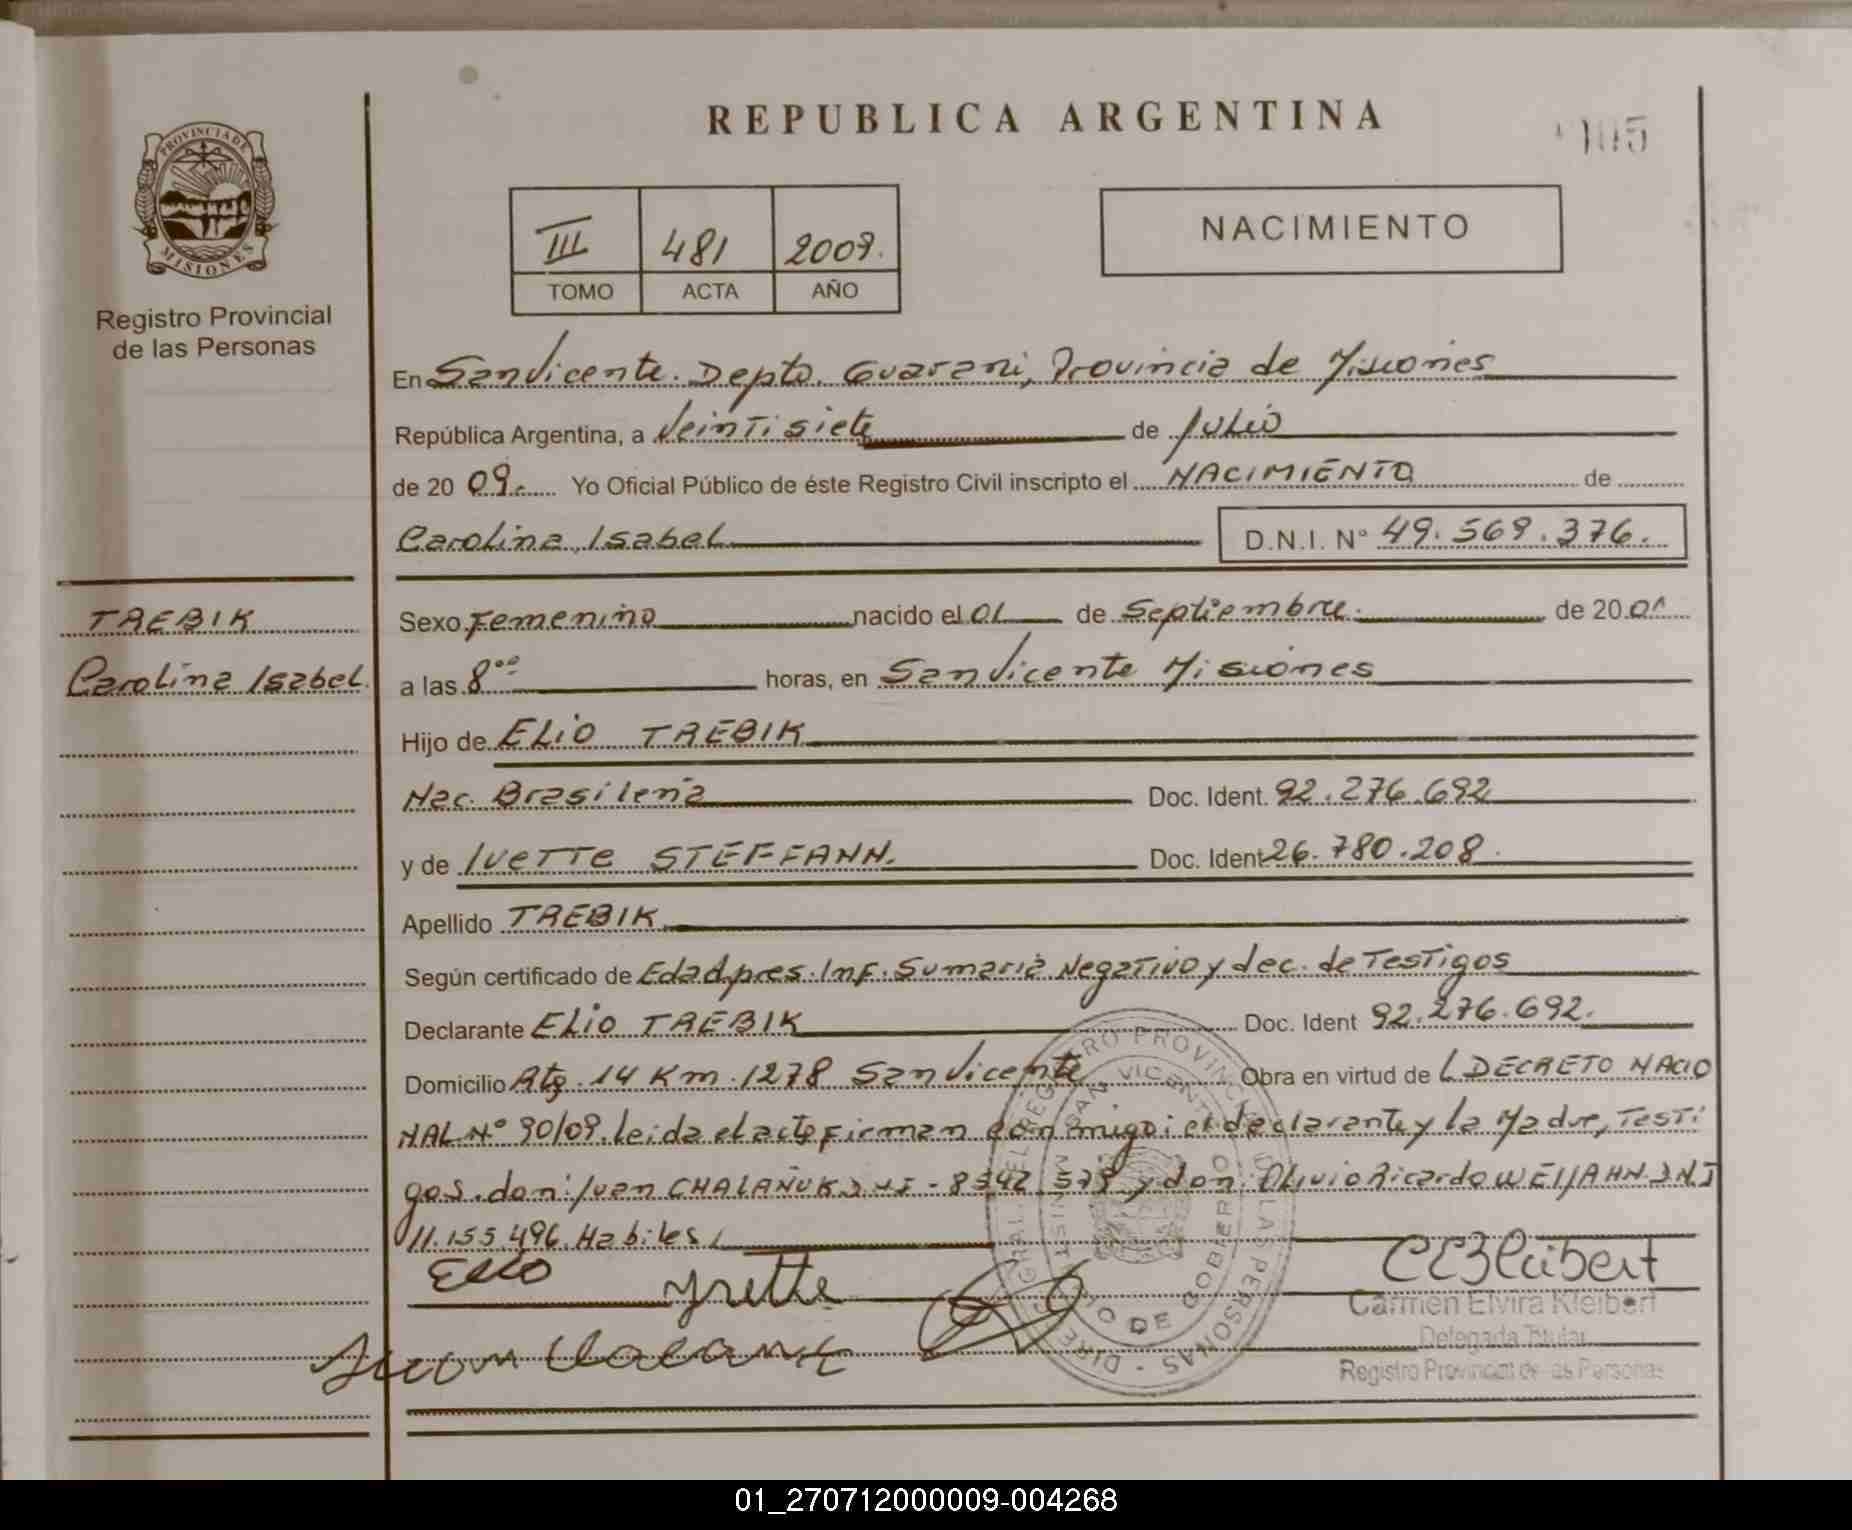 REPUBLICA ARGENTINA
105
PROVINCIA DE
MISIONES
Registro Provincial
de las Personas
III 481 2009.
TOMO ACTA AÑO
NACIMIENTO
En San Vicente. Depto. Guarani, Provincia de Misiones
República Argentina, a Veintisiete de Julio
de 20 09. Yo Oficial Público de éste Registro Civil inscripto el NACIMIENTO de
Carolina Isabel D.N.I. N° 49.569.376.
TREBIK
Carolina Isabel.
Sexo Femenino nacido el 01 de Septiembre. de 20 01
a las 8°° horas, en San Vicente Misiones
Hijo de ELIO TREBIK
Nac. Brasileña Doc. Ident. 92.276.692
y de Ivette STEFFANN. Doc. Ident 26.780.208.
Apellido TREBIK
Según certificado de Edad pres. Inf. Sumaria Negativo y dec. de Testigos
Declarante ELIO TREBIK Doc. Ident 92.276.692.
Domicilio Rta. 14 Km. 1278 San Vicente Obra en virtud de L DECRETO NACIO
NAL N° 90/09. leida el acta firman conmigo: el declarante y la Madre, Testi
gos. don: Juan CHALAÑUK D.N.I - 8342 579 y don: Olivio Ricardo WEIJAHN. D.N.I
11.155.496. Habiles
Elio Yvette
CEKleibert
Carmen Elvira Kleibert
Delegada Titular
Registro Provincial de las Personas
01_270712000009-004268